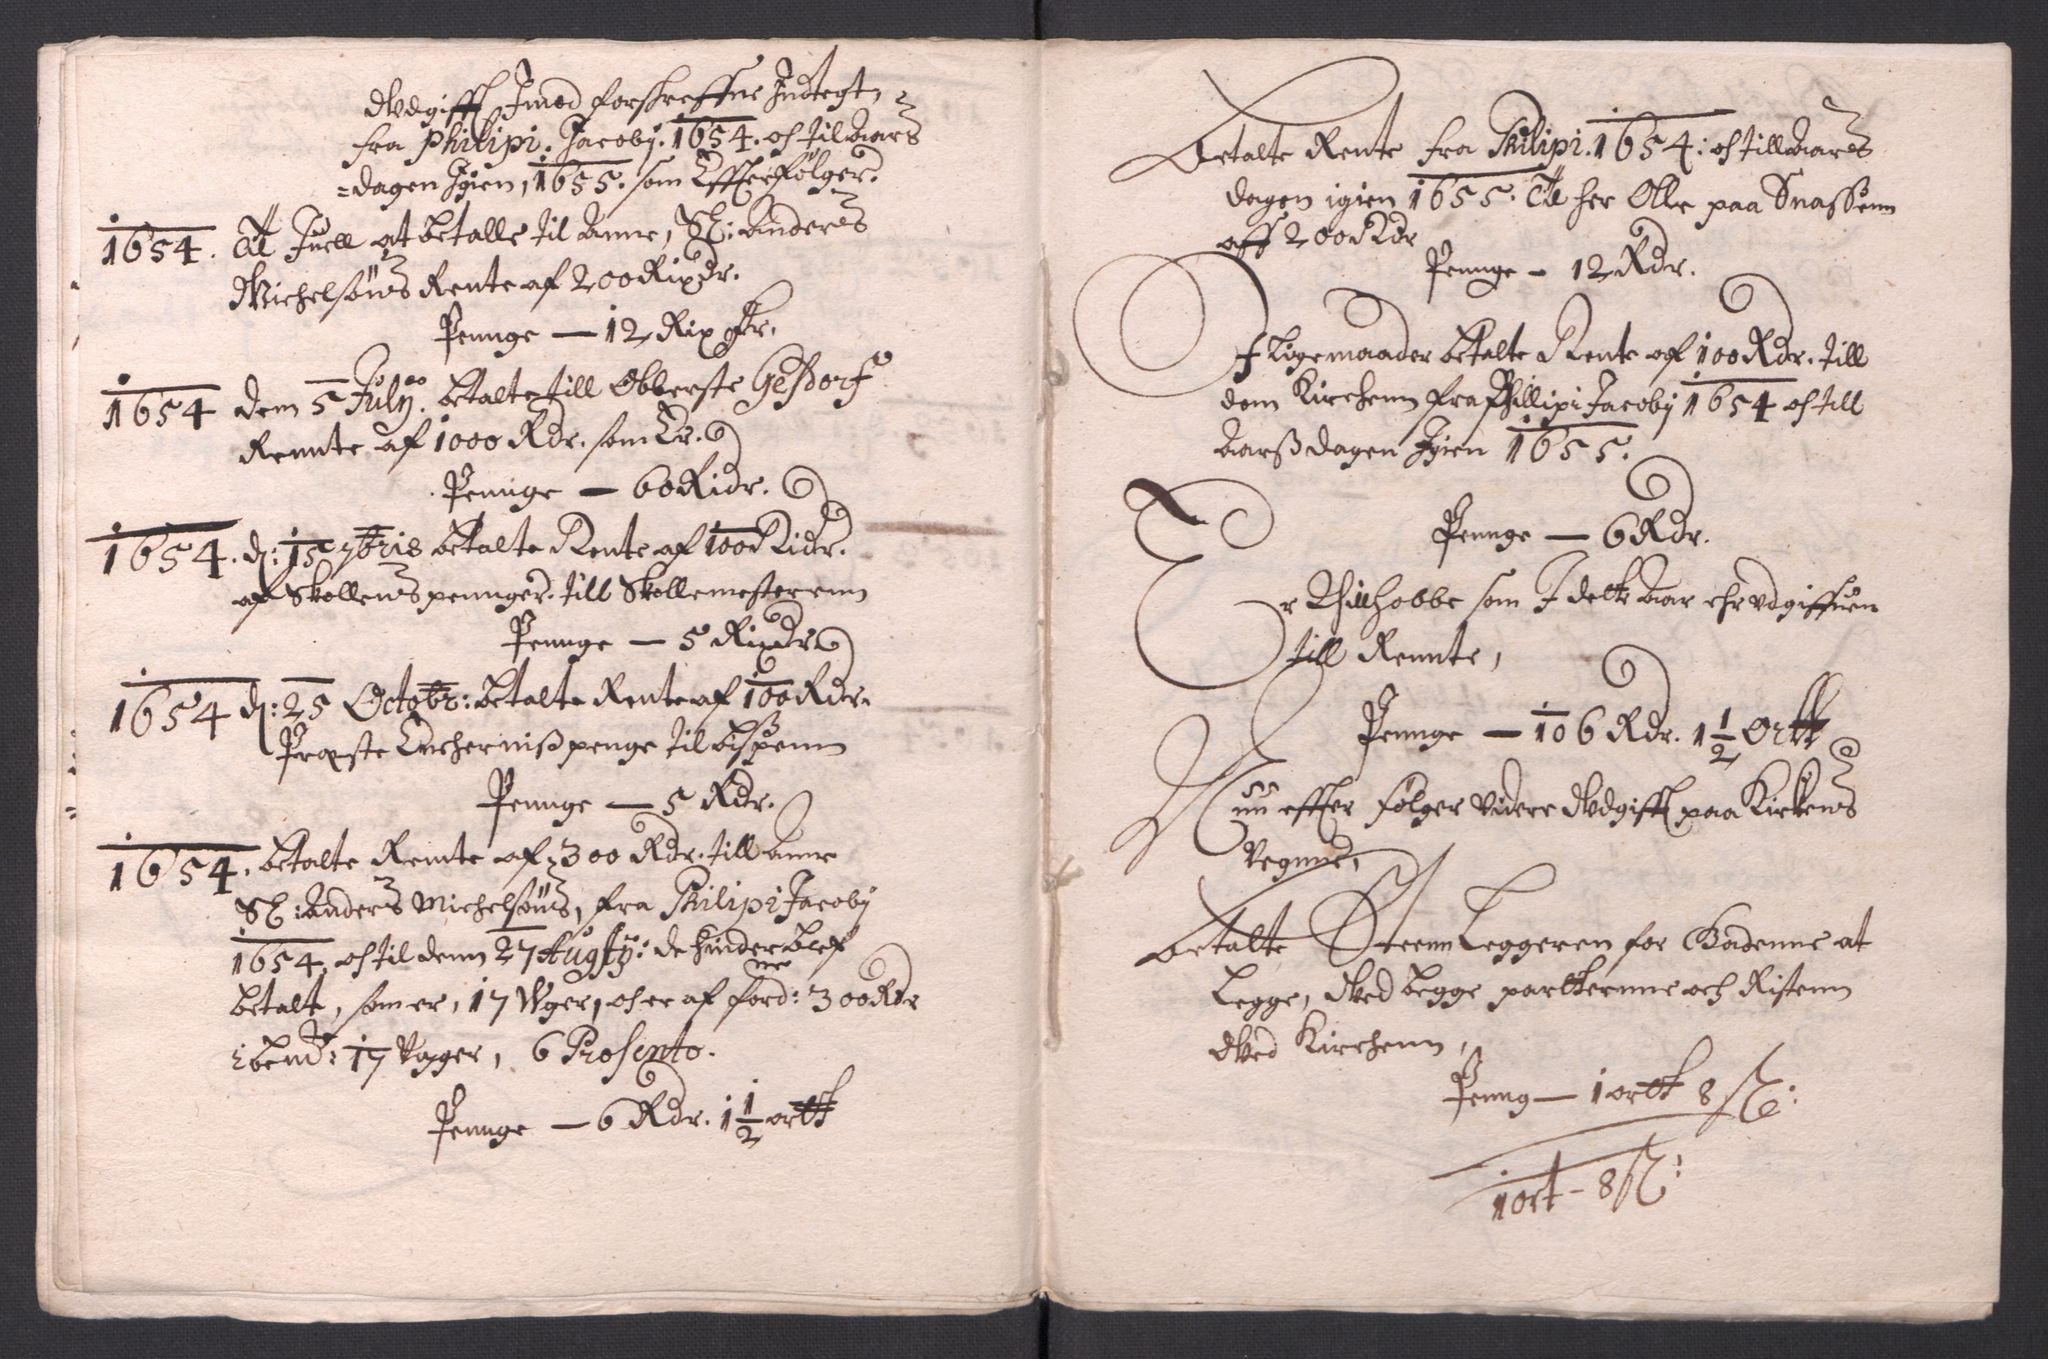 Udgifft Jmod forskreffne Jndtegt
fra Philipi. Jacoby. 1654. och til Aars
=dagen Jgien, 1655. som Effterfölger.
1654. At Juell at betalle til Anne, Sl: Anders
Michelsöns Rente af 200 Rixdr.
Pennge — 12 Rix dr.
1654 dem 5 July. betalte till Obberste
Rennte af 1000 Rdr. som Er.
Pennge — 60 Ridr.
1654. d: 15 7bris betalte Rente af 100 Ridr.
af Skollens pennger. till Skollemesterenn
Pennge — 5 Rixdr
1654 d: 25 Octobr: betalte Rente af 100 Rdr.
Proste penge til bispenn
Pennge — 5 Rdr.
1654. betalte Rente af 300 Rdr. till Anne
Sl: Anders Michelsöns, fra Philipi Jacoby
1654. och til denn 27 Augsty: de hinder blef
betalt, som er, 17 Uger, och er af ford:ne 300 Rdr
i bemd: 17 Uger, 6 Prosento.
Pennge — 6 Rdr. 1 1/2 ortt
Betalte Rente fra Philipi. 1654: och till Aars
dagen igien 1655. Til her Olle paa Snassenn
aff 200 Rdr
Pennge - 12 Rdr.
J ligemaader betalte Rente af 100 Rdr. till
dem Kirchenn fra Phillipi Jacoby 1654 och till
Aarsdagen Jgien 1655.
Pennge — 6 Rdr.
Er Thillhobbe som J dette Aar ehr udgiffuen
till Rennte,
Pennge — 106 Rdr. 1 1/2 Ortt
Nuu effter følger videre Udgifft paa Kirkens
Vegnne,
Betalte Steenn Leggeren for Gadenne at
Legge, Ved begge portterne och Ristenn
Ved Kirchenn,
Penng — 1 ortt 8 sk:
1 ort - 8 sk: